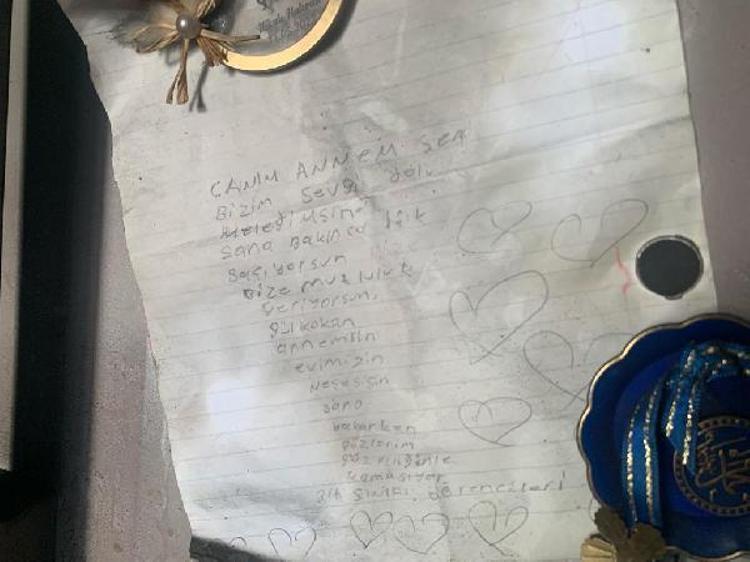 CANIM ANNEM SEN
Bizim Sevgi dolu
Meleğimsin
Sana Bakınca ışık
Saçıyorsun
Bize mutluluk
Veriyorsun.
gül kokan
annemsin
evimizin
neşesisin
sana
bakarken
gözlerim
güzelliğinle
kamaşıyor
sınıfı öğrencileri